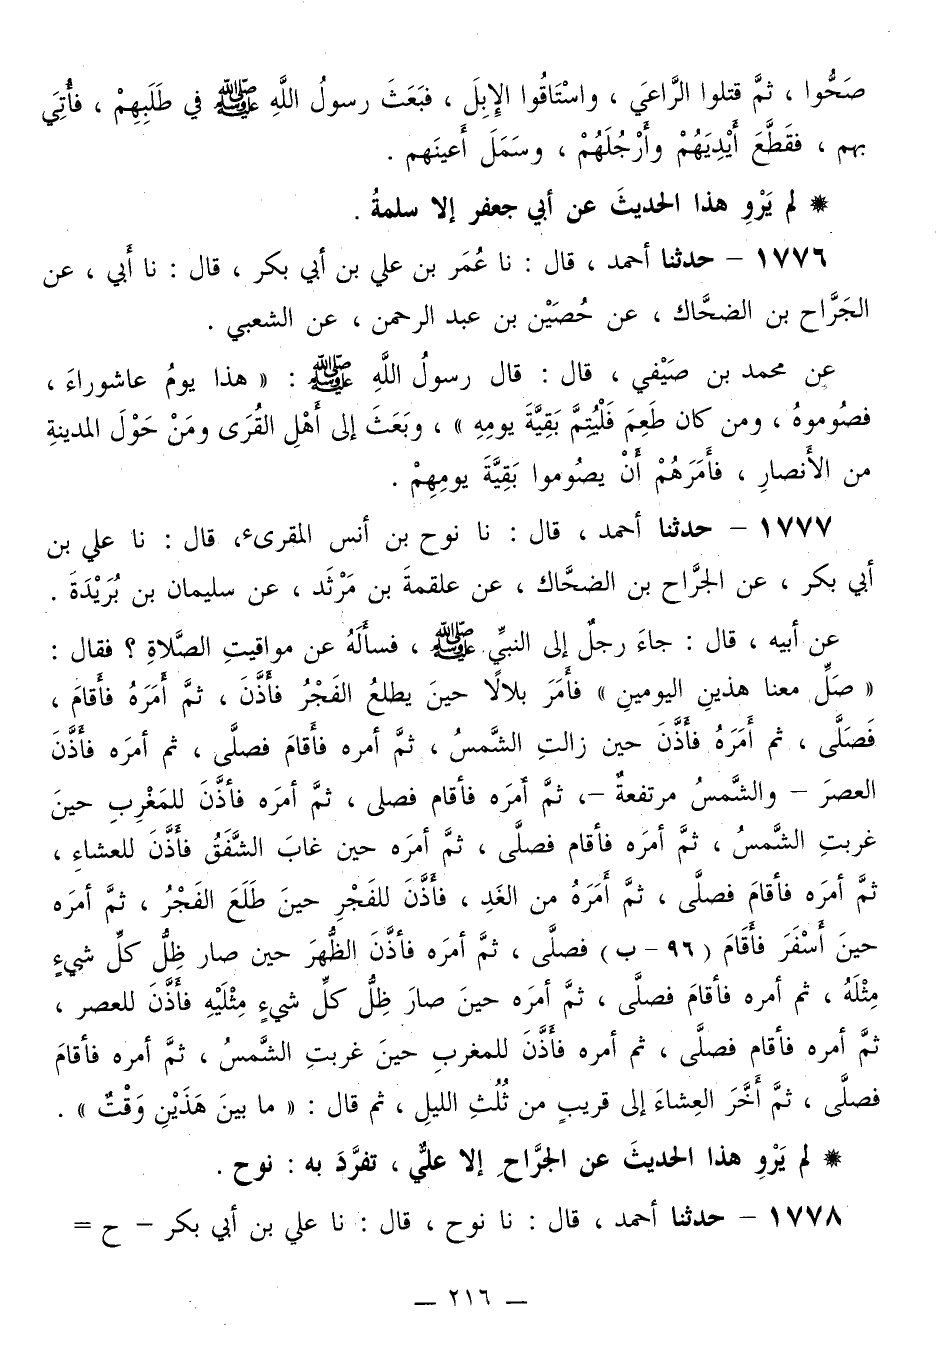 صَحُّوا ، ثمَّ قتلوا الرَّاعيَ ، واسْتَاقُوا الإِبِلَ ، فبَعَثَ رسولُ اللَّهِ ﷺ في طَلَبِهِمْ ، فأُتِيَ
بهم ، فقَطَّعَ أَيْدِيَهُمْ وأَرْجُلَهُمْ ، وسَمَلَ أَعينَهم .
* لم يَرْوِ هذا الحديثَ عن أبي جعفر إلا سلمةُ .
١٧٧٦ – حدثنا أحمد ، قال : نا عُمَر بن علي بن أبي بكر ، قال : نا أَبي ، عن
الجَرَّاح بن الضحَّاك ، عن حُصَيْن بن عبد الرحمن ، عن الشعبي .
عن محمد بن صَيْفي ، قال : قال رسولُ اللَّهِ ﷺ : « هذا يومُ عاشوراءَ ،
فصُوموهُ ، ومن كان طَعِمَ فَلْيُتِمَّ بَقِيَّةَ يومِهِ » ، وبَعَثَ إلى أَهْلِ القُرَى ومَنْ حَوْلَ المدينةِ
من الأَنصارِ ، فأَمَرَهُمْ أَنْ يصُوموا بَقِيَّةَ يومِهِمْ .
١٧٧٧ – حدثنا أحمد ، قال : نا نوح بن أنس المقرىء، قال : نا علي بن
أبي بكر ، عن الجرَّاح بن الضحَّاك ، عن علقمةَ بن مَرْثَد ، عن سليمان بن بُرَيْدَةَ .
عن أبيه ، قال : جاءَ رجلٌ إلى النبيِّ ﷺ ، فسأَلَهُ عن مواقيتِ الصَّلاةِ ؟ فقال :
« صَلِّ معنا هذينِ اليومينِ » فأَمَرَ بلالًا حينَ يطلعُ الفَجْرُ فأَذَّنَ ، ثمَّ أَمَرَهُ فأَقامَ ،
فَصَلَّى ، ثم أَمَرَهُ فأَذَّنَ حين زالتِ الشَّمسُ ، ثمَّ أمره فأَقامَ فصلَّى ، ثم أمرَه فأذَّنَ
العصرَ – والشَّمسُ مرتفعةٌ –، ثمَّ أمرَه فأقام فصلى ، ثمَّ أمرَه فأذَّنَ للمَغْربِ حينَ
غربتِ الشَّمسُ ، ثمَّ أمرَه فأقام فصلَّى ، ثمَّ أمرَه حين غابَ الشَّفَقُ فأَذَّنَ للعشاءِ ،
ثمَّ أمرَه فأقامَ فصلَّى ، ثمَّ أَمَرَهُ من الغَدِ ، فأَذَّنَ للفَجْرِ حينَ طَلَعَ الفَجْرُ ، ثمَّ أمرَه
حينَ أَسْفَرَ فأَقَامَ ( ٩٦ - ب ) فصلَّى ، ثمَّ أمرَه فأذَّنَ الظُّهرَ حين صار ظِلُّ كلِّ شيءٍ
مِثْلَهُ ، ثم أمره فأقامَ فصلَّى ، ثمَّ أمرَه حينَ صارَ ظِلُّ كلِّ شيءٍ مِثْلَيْهِ فأذَّنَ للعصر ،
ثمَّ أمره فأقام فصلَّى ، ثم أمره فأَذَّنَ للمغربِ حينَ غربتِ الشَّمسُ ، ثمَّ أمره فأقامَ
فصلَّى ، ثمَّ أَخَّرَ العِشاءَ إلى قريبٍ من ثُلُثِ الليلِ ، ثم قال : « ما بينَ هَذَيْنِ وَقْتٌ » .
* لم يَرْوِ هذا الحديثَ عن الجرَّاحِ إلا عليٌّ ، تفرَّدَ به : نوح .
١٧٧٨ – حدثنا أحمد ، قال : نا نوح ، قال : نا علي بن أبي بكر – ح =
— ٢١٦ —